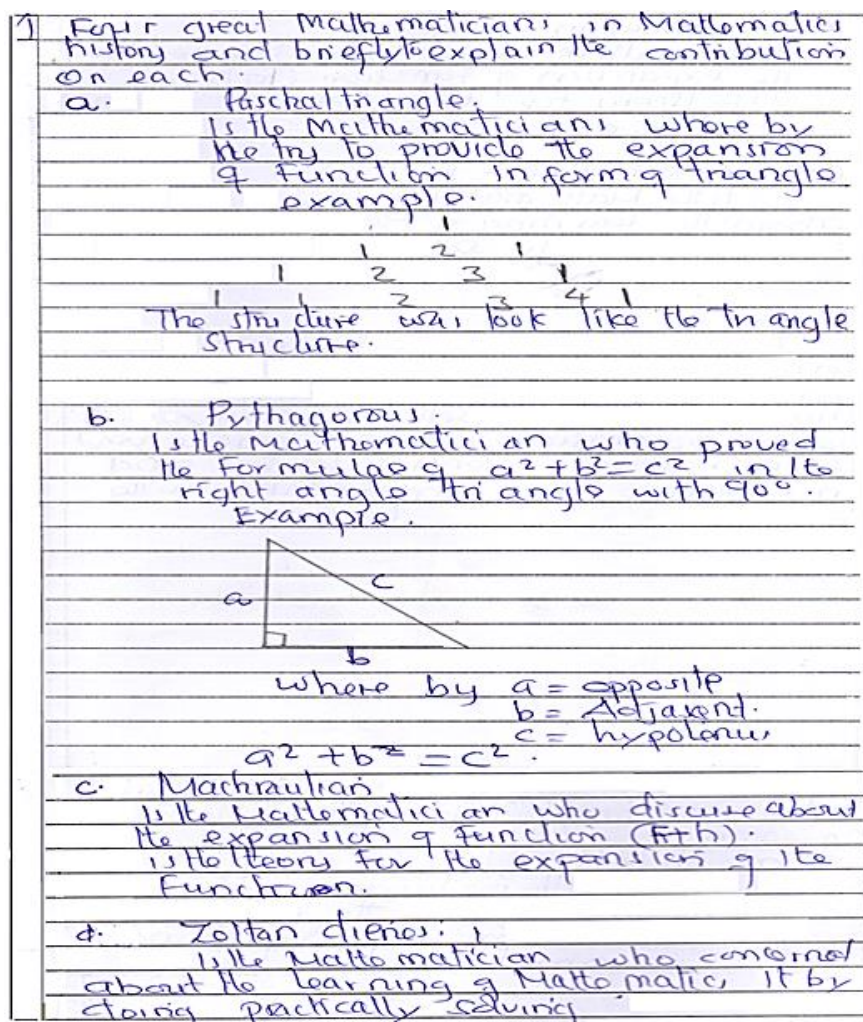 1 Four great Mathematicians in Mathematics
history and briefly to explain the contribution
on each.
a. Paschal triangle.
Is the Mathematicians where by
he try to provide the expansion
of function in form of triangle
example.
1
1 2 1
1 2 3 1
1 1 2 3 4 1
The structure was look like the triangle
structure.
b. Pythagorous
Is the Mathematician who proved
the formulae of a² + b² = c² in the
right angle triangle with 90°.
Example.
a c
b
where by a = opposite
b = Adjaxent.
c = hypotenus
a² + b² = c².
c. Machraulian
Is the Mathematician who discuse about
the expansion of function (x+h).
is the theory for the expansion of the
Function.
d. Zoltan dienes:
Is the Mathematician who concerned
about the learning of Mathematics it by
doing practically solving